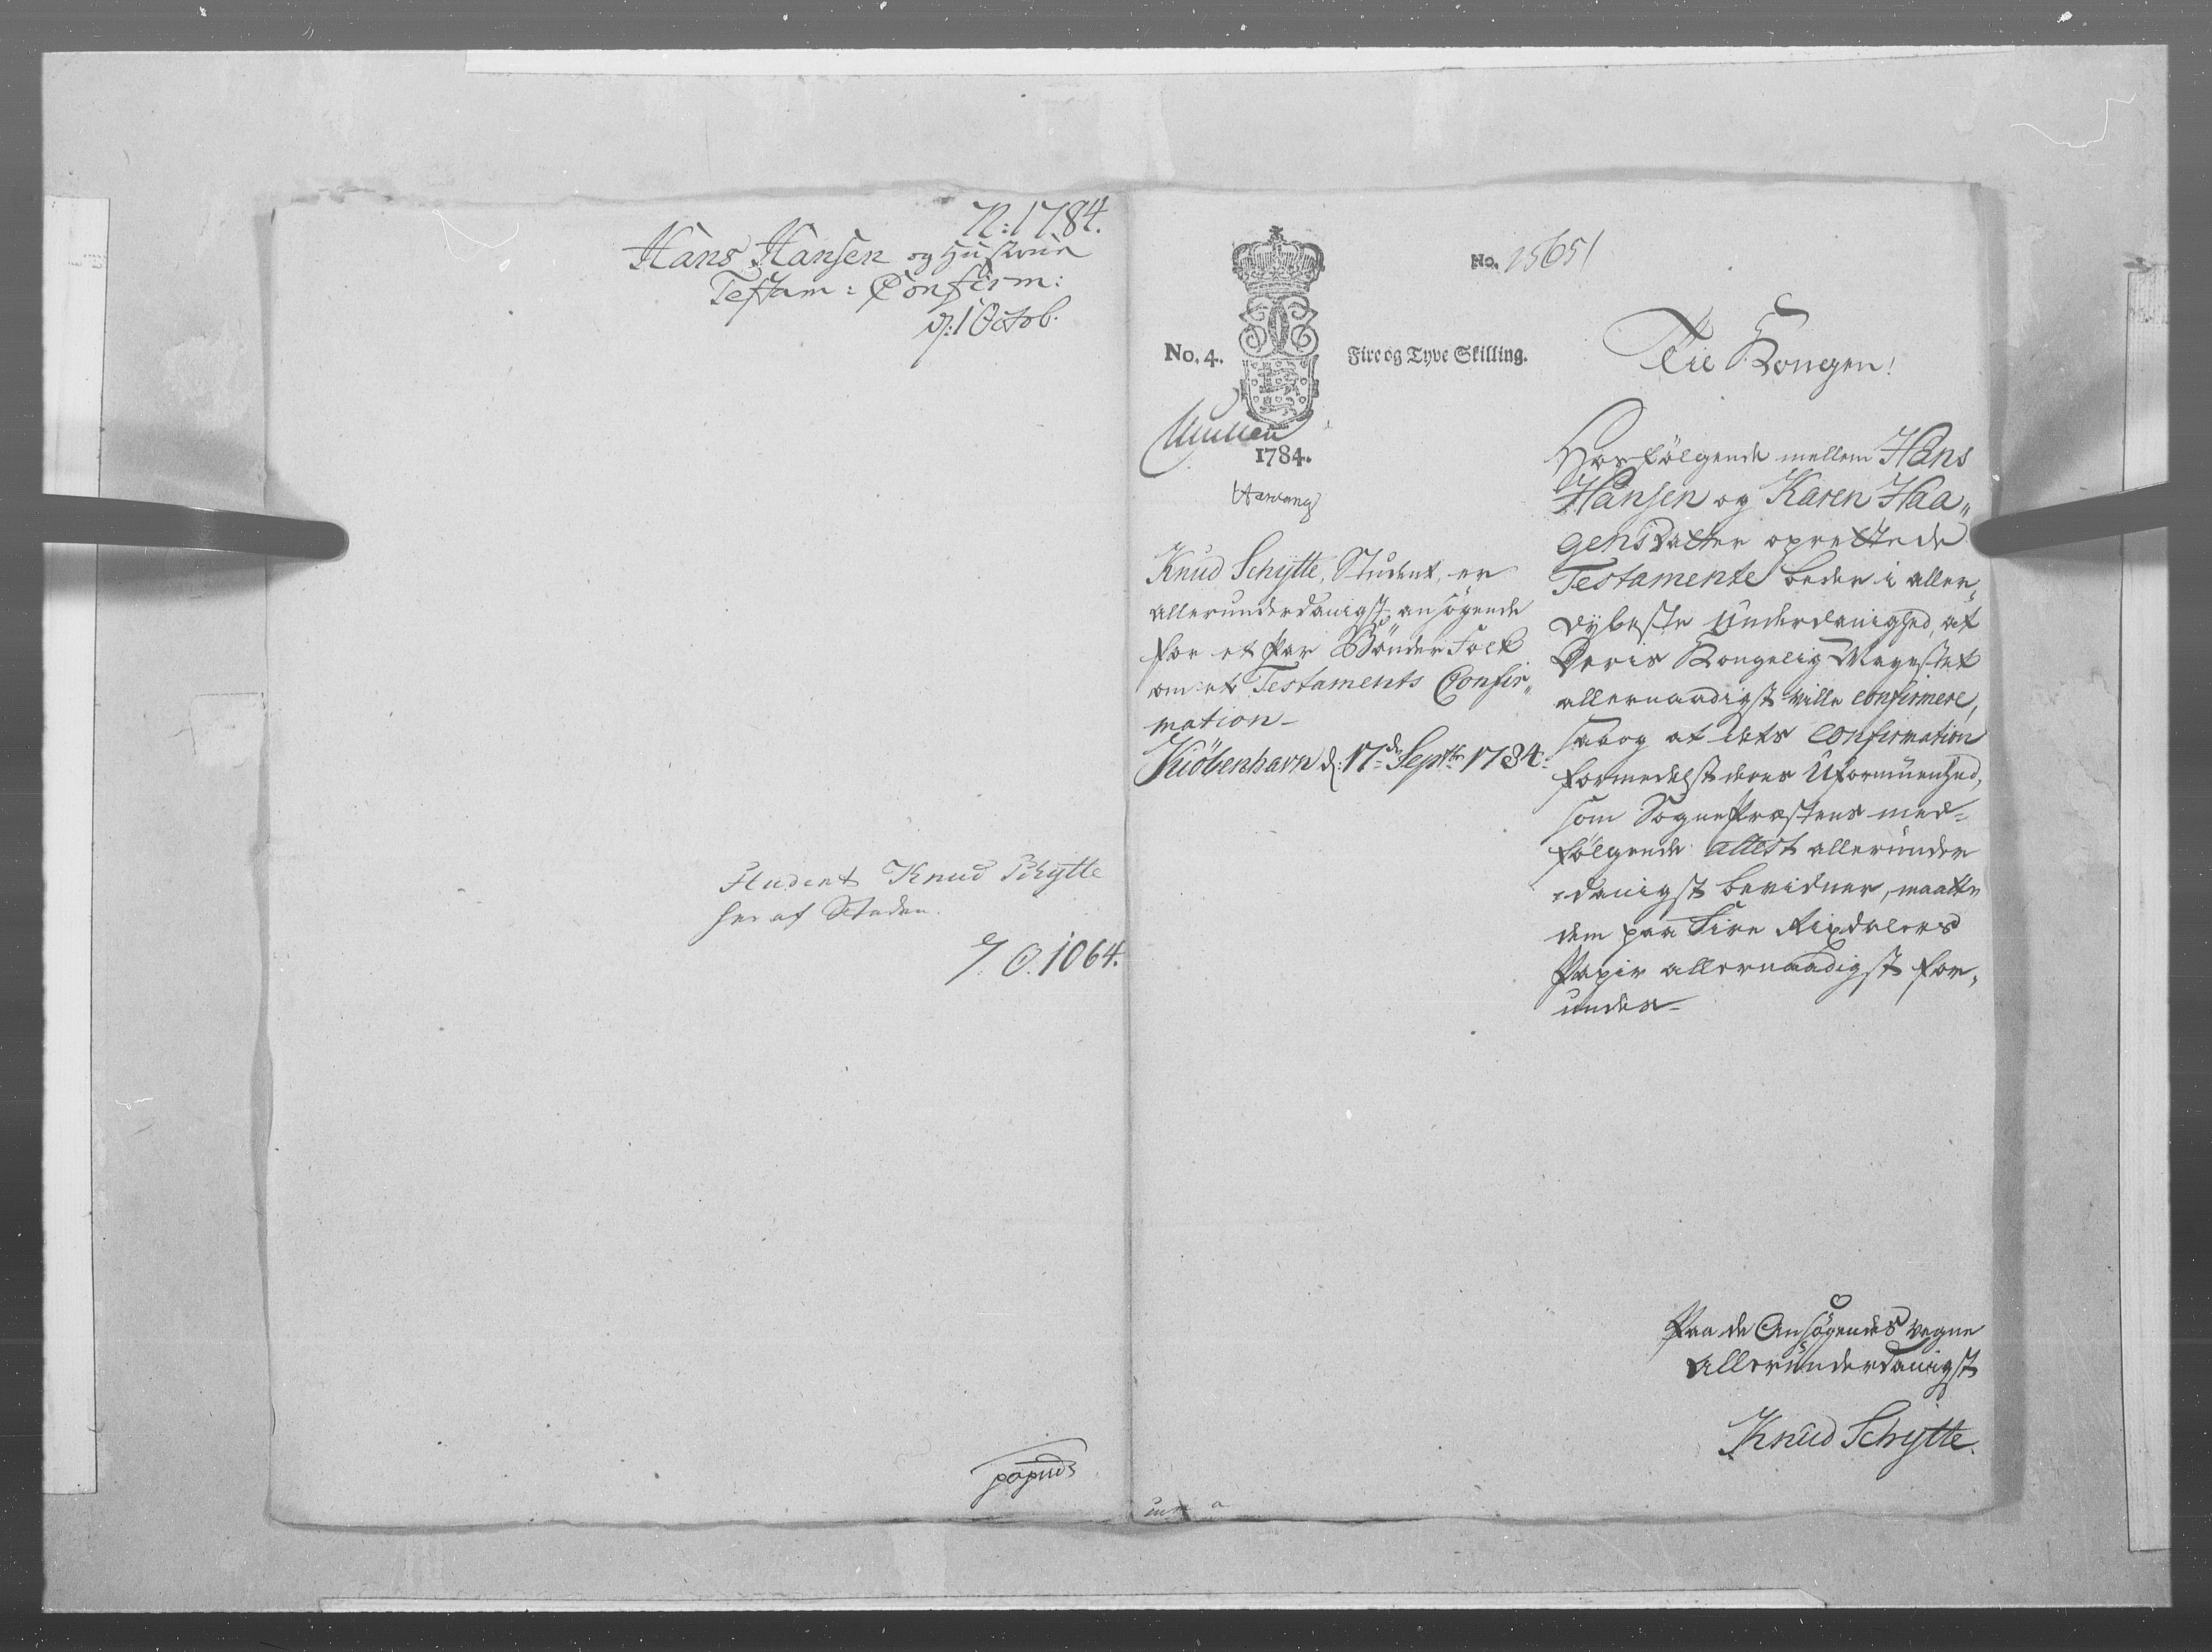 N: 1784.
Hans Hansen og Hustrue
Testam: Confirm:
d: 1 Octob.
Student Knud Schytte
her af Staden.
O. 1064.
No. 15651
No. 4.
Fire og Tyve Skilling.
1784.
Knud Schytte, Student, er
allerunderdanigst ansögende
for et Par Bönder Folk
om et Testaments Confir„
mation_
Kiöbenhavn d: 17de Septbr 1784.
Til Kongen!
Hosfölgende mellem Hans
Hansen og Karen Haa„
gensdatter oprettede
Testamente beder i aller„
dybeste Underdanighed, at
Deris Kongelig Mayestet
allernaadigst ville confirmere,
saa og at dets Confirmation
formedelst deres Uformuenhed,
som Sognepræstens med=
fölgende attest allerunder
=danigst bevidner, maatte
dem paa Fire Rixdalers
Papir allernaadigst for„
undes_
Paa de Ansögendes Vegne
allerunderdanigst
Knud Schytte.